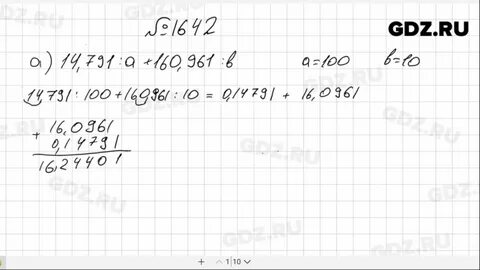 №1642
GDZ.RU
а) 14,791 : а + 160,961 : в   а=100   в=10
14,791 : 100 + 160,961 : 10 = 0,14791 + 16,0961
+ 16,0961
0,14791
16,24401
+ 1 10